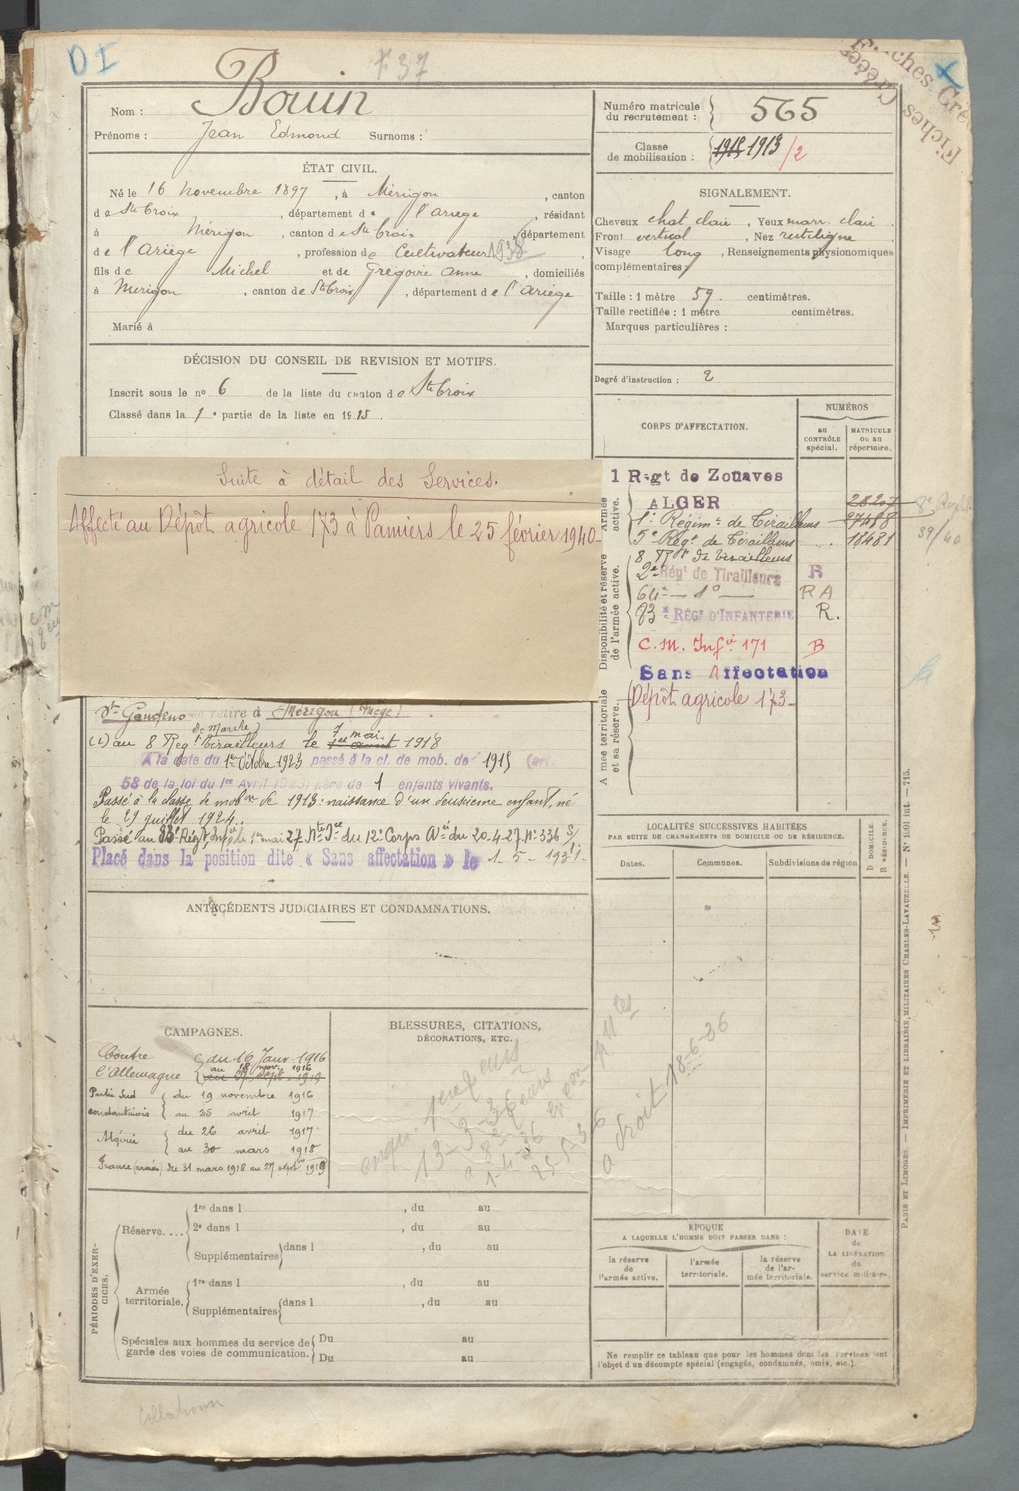 D I
F 37
Fiches Créées
Fiches Créées
Nom : Bouin
Prénoms : Jean Edmond Surnoms :
Numéro matricule du recrutement : 565
Classe de mobilisation : 1915 1913 /2
ÉTAT CIVIL.
Né le 16 novembre 1897, à Mérigon, canton
de Ste Croix, département de l'ariège, résidant
à Mérigon, canton de Ste Croix, département
de l'Ariège, profession de Cultivateur 1938
fils de Michel et de Grégoire anne, domiciliés
à Mérigon, canton de Ste Croix, département de l'ariège
Marié à
SIGNALEMENT.
Cheveux chat. clair, Yeux marr. clair
Front vertical, Nez rectiligne
Visage long, Renseignements physionomiques
complémentaires
Taille : 1 mètre 59 centimètres.
Taille rectifiée : 1 mètre centimètres.
Marques particulières :
DÉCISION DU CONSEIL DE REVISION ET MOTIFS.
Inscrit sous le no 6 de la liste du canton de Ste Croix
Classé dans la 1e partie de la liste en 1915
Degré d'instruction : 2
CORPS D'AFFECTATION.
NUMÉROS
AU CONTRÔLE spécial.
MATRICULE ou au répertoire.
Suite à détail des Services.
Affecté au Dépôt agricole 173 à Pamiers le 25 février 1940
Armée active.
1 Régt de Zouaves
ALGER
1e Régimt de Tirailleurs
5e Régt de Tirailleurs 18481
8 Rgt de tirailleurs
Disponibilité et réserve de l'armée active.
2e Régt de Tirailleurs R
64e — do — RA
83e RÉGT D'INFANTERIE R.
C. M. Infie 171 B
Sans Affectation
Dépôt agricole 173
39/40
Armée territoriale et sa réserve.
St Gaudens se retire à Mérigon (Ariège)
(1) au 8 Régt de Marche Tirailleurs le 7 mai 1918
A la date du 1er Octobre 1923 passé à la cl. de mob. de 1915 (art.
58 de la loi du 1er Avril 1923) père de 1 enfants vivants.
Passé à la classe de mobon de 1913: naissance d'un deuxième enfant, né
le 29 juillet 1924.
Passé au 83e Régt Infie le 1er mai 27. Nte Sce du 12e Corps Ée du 20.4.27. No 336 S/
Placé dans la position dite « Sans affectation » le 1-5-1931.
ANTÉCÉDENTS JUDICIAIRES ET CONDAMNATIONS.
LOCALITÉS SUCCESSIVES HABITÉES
PAR SUITE DE CHANGEMENTS DE DOMICILE OU DE RÉSIDENCE.
Dates. Communes. Subdivisions de région
D DOMICILE. R RÉSIDENCE.
CAMPAGNES.
Contre l'Allemagne du 16 Janv. 1916
au 18 nov. 1916
Partie Sud constantinois du 19 novembre 1916
au 25 avril 1917
Algérie du 26 avril 1917
au 30 mars 1918
France (armées) du 31 mars 1918 au 27 septbre 1919
BLESSURES, CITATIONS,
DÉCORATIONS, ETC.
13-3-36
1-4-36
25-5-36
a droit 18-6-36
PÉRIODES D'EXERCICES.
Réserve....
1re dans l , du au
2e dans l , du au
Supplémentaires dans l , du au
Armée territoriale.
1re dans l , du au
Supplémentaires dans l , du au
Spéciales aux hommes du service de garde des voies de communication.
Du au
Du au
EPOQUE
A LAQUELLE L'HOMME DOIT PASSER DANS :
la réserve de l'armée active.
l'armée territoriale.
la réserve de l'armée territoriale.
DATE de LA LIBÉRATION du service militaire.
Ne remplir ce tableau que pour les hommes dont les services ont
l'objet d'un décompte spécial (engagés, condamnés, omis, etc.)
PARIS ET LIMOGES. — IMPRIMERIE ET LIBRAIRIE MILITAIRES CHARLES-LAVAUZELLE. — No 1001 int —715.